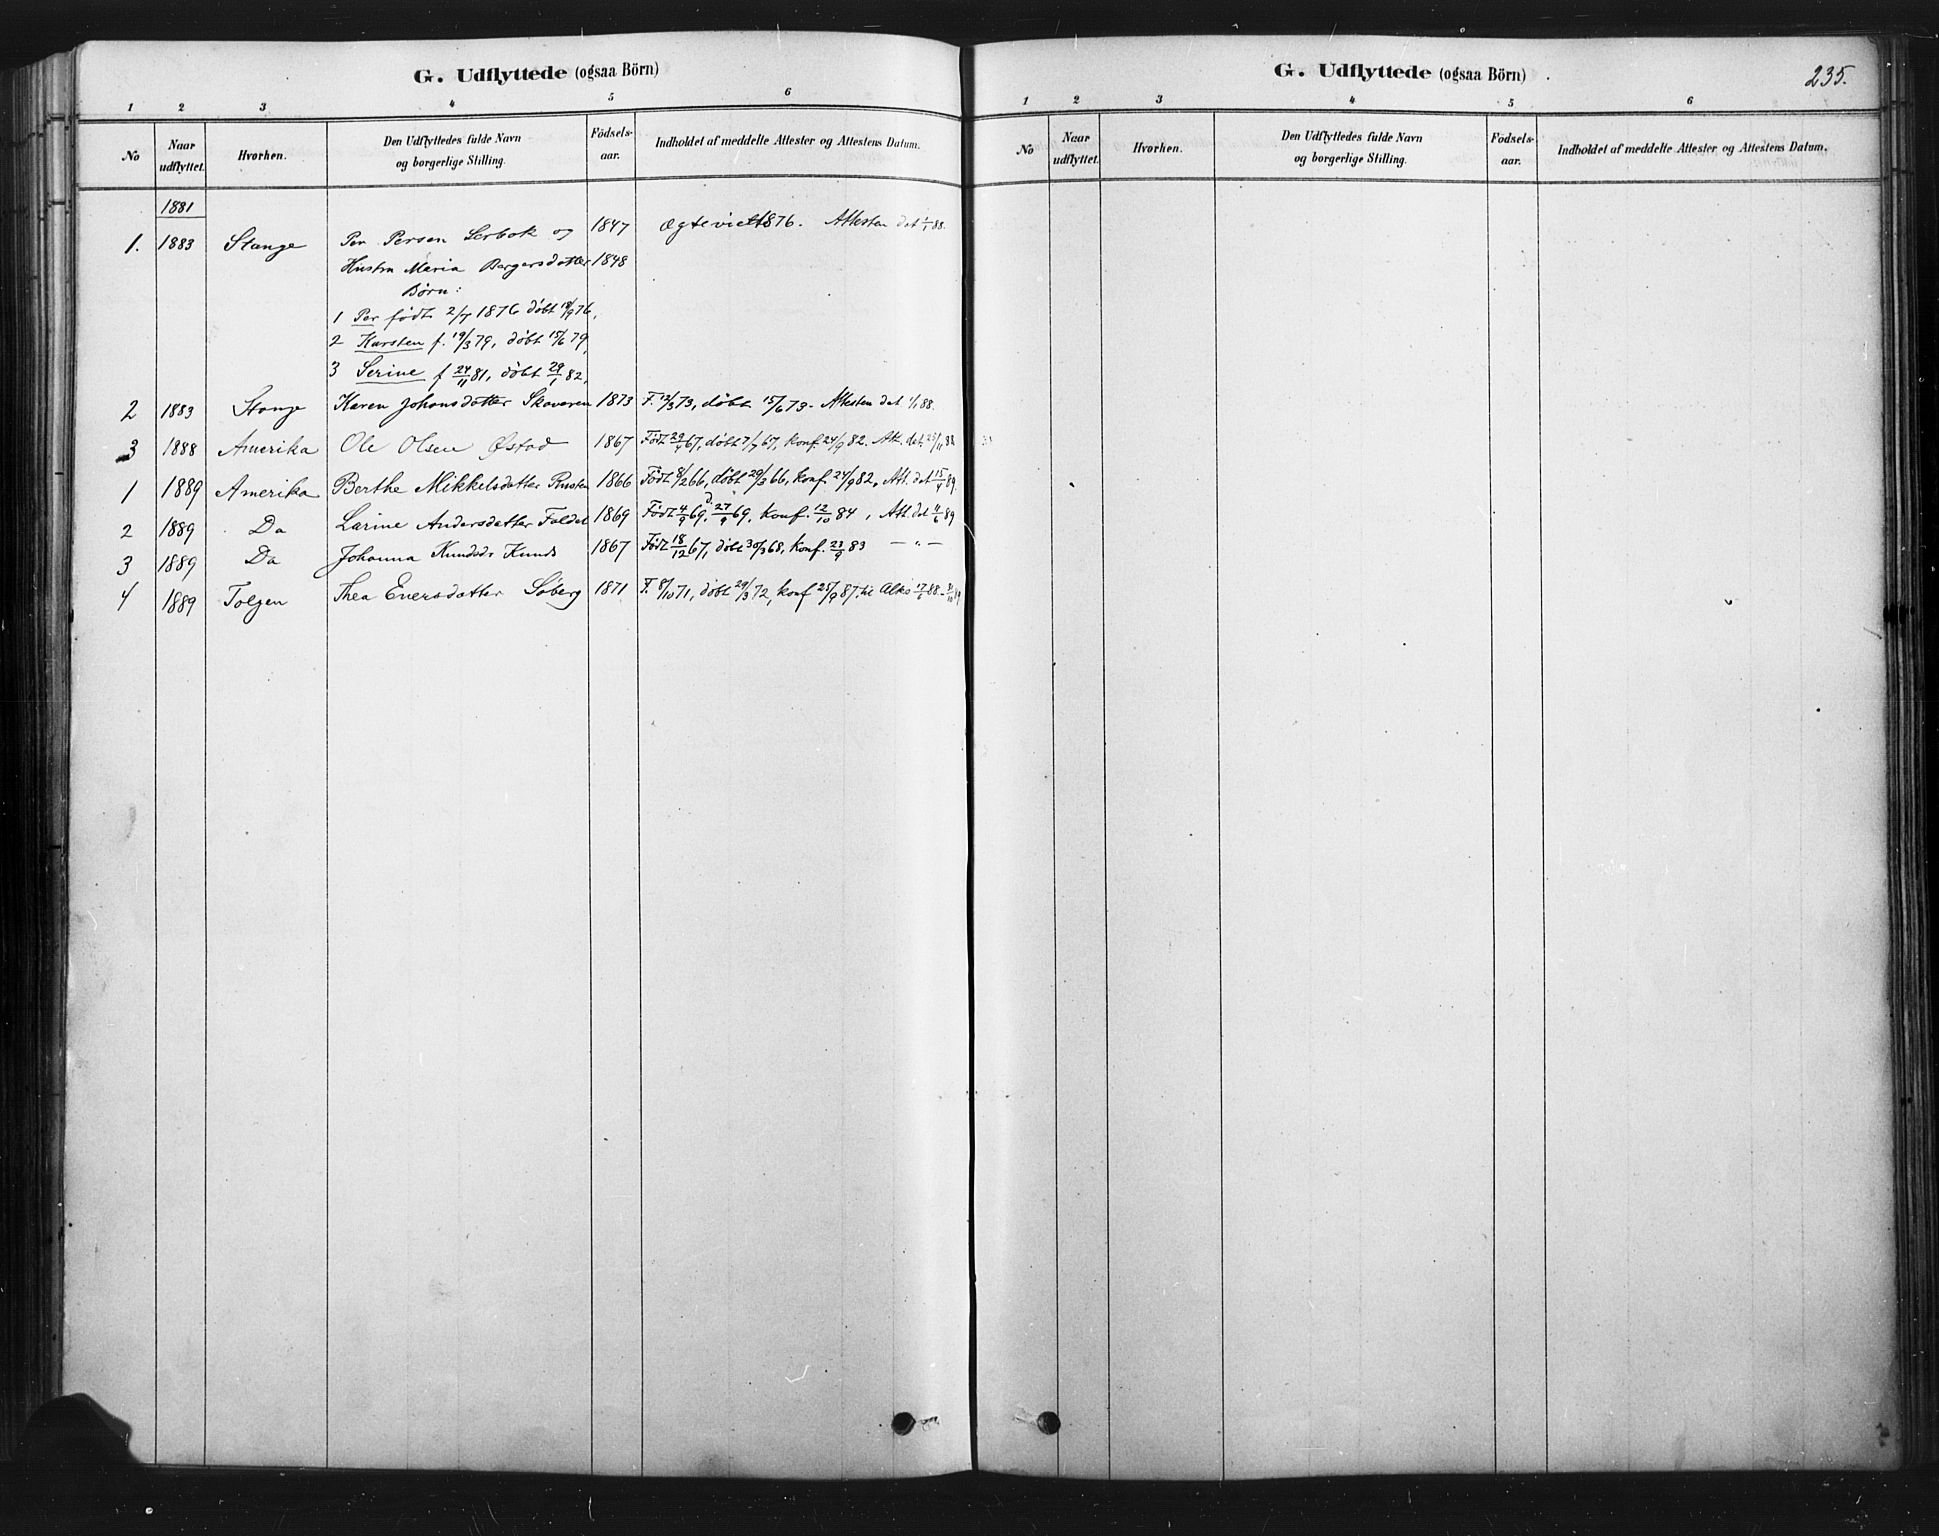 G. Udflyttede (ogsaa Börn)
1 2 3 4 5 6
No Naar udflyttet. Hvorhen. Den Udflyttedes fulde Navn og borgerlige Stilling. Födsels-aar. Indholdet af meddelte Attester og Attestens Datum.
1881
1. 1883 Stange Per Persen Serbok og 1847 Ægteviet 1876. Attesten dat 1/1 88.
Hustru Maria Bergersdatter 1848
Børn:
1 Per født 2/7 1876 døbt 18/9 76,
2 Karsten f. 19/3 79, døbt 15/6 79,
3 Serine f 24/11 81, døbt 29/1 82,
2 1883 Stange Karen Johansdatter Skoveren 1873 F. 12/3 73, døbt 15/6 73. Attesten dat. 1/1 88.
3 1888 Amerika Ole Olsen Østad 1867 Født 29/4 67, døbt 7/7 67, konf. 24/9 82. Att. dat. 23/11 88
1 1889 Amerika Berthe Mikkelsdatter Rusten 1866 Født 8/2 66, døbt 29/3 66, konf. 24/9 82, Att. dat 15/4 89.
2 1889 Do Larine Andersdatter Foldal 1869 Født 4/9 69, d. 27/9 69, konf. 12/10 84, Att. dat 11/6 89
3 1889 Do Johanna Knudsdr Knuds 1867 Født 18/12 67, døbt 30/3 68, konf. 23/9 83 — " —
4 1889 Tolgen Thea Enersdatter Søberg 1871 F. 8/10 71, døbt 29/3 72, konf 25/9 87. til Alks 17/6 88 - 31/10 89
G. Udflyttede (ogsaa Börn)
235.
1 2 3 4 5 6
No Naar udflyttet. Hvorhen. Den Udflyttedes fulde Navn og borgerlige Stilling. Födsels-aar. Indholdet af meddelte Attester og Attestens Datum.